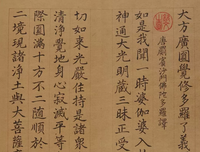 大方廣圓覺修多羅了義
唐罽賓沙門佛陀多羅譯
如是我聞一時婆伽婆入
神通大光明藏三昧正受一
切如來光嚴住持是諸衆
清淨覺地身心寂滅平等
際圓滿十方不二隨順於
二境現諸淨土與大菩薩